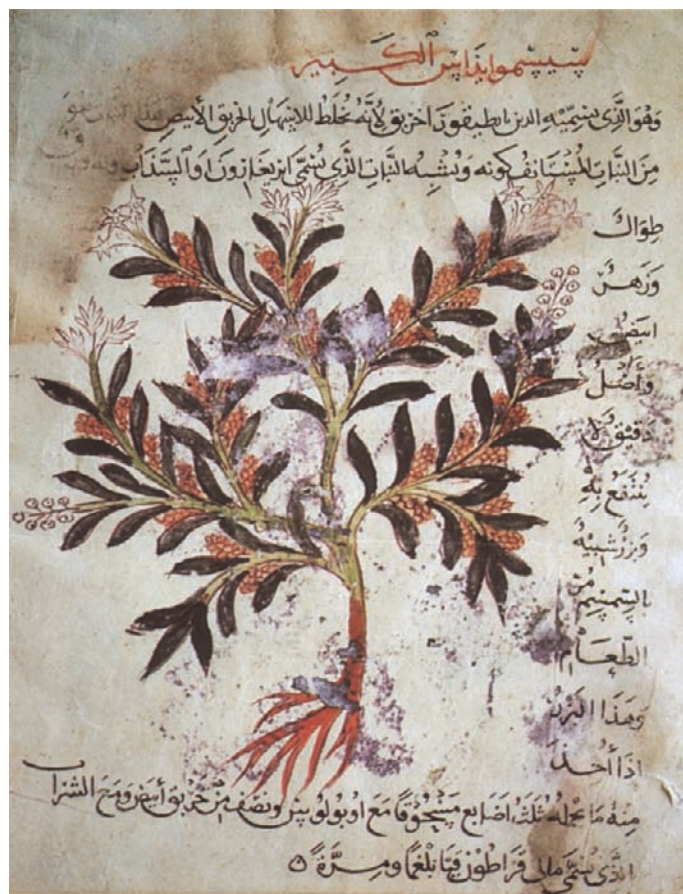 سيسمويداس الكبير
وهو الذى يسميه الدين بانطيقون اخربق لانه يخلط للاسهال الخربق الأبيض
من النبات المستانف كونه ويشبه النبات الذى يسمى ايريغارون او السذاب
طوال
وزهر
ابيض
وأصل
دقيق لا
ينتفع به
وبزر شبيه
بالسمسم مر
الطعام
وهذا البزر
اذا أخذ
منه ما يحمله ثلث اصابع مسحوقا مع اوبولوس ونصف من خربق أبيض ومع الشراب
الذى يسمى مالى قراطون قيا بلغما ومرة